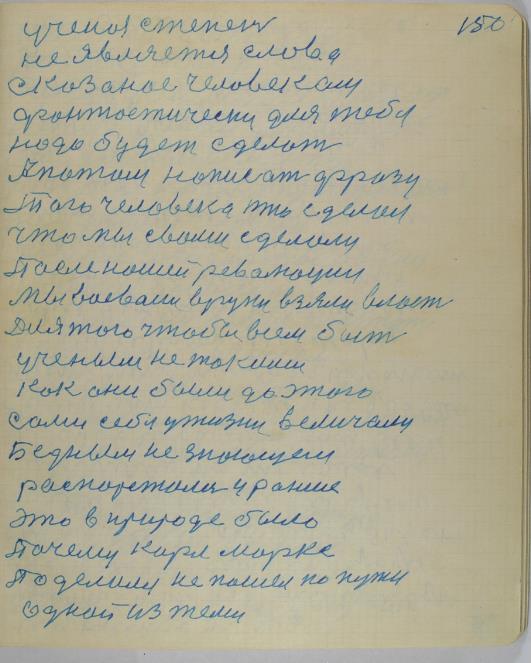 150
ученоя степень
не является слова
Сказаное человекам
фронтостически для тебя
надо будет сделат
А потом нописат фразу
Того человека кто сделал
что мы своми сделали
После ношей революции
мы воевали в руки взяли власт
Для того чтобы всем быт
учеными не такими
Как они были до этого
сами себя в жизни величали
Бедными не знающеми
распоряжоли и ранше
это в природе было
Почему Карл Маркс
По делам не пошел по пути
одной из теми